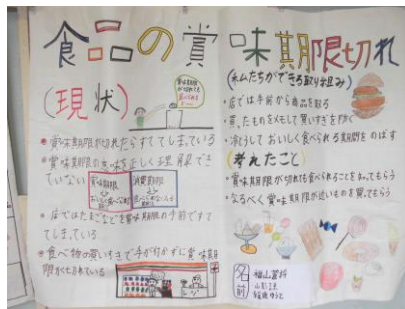 食品の賞味期限切れ
(現状)
賞味期限
が切れても食
べられる
・賞味期限が切れたらすててしまっている
・賞味期限の意味を正しく理解でき
ていない
賞味期限
おいしく食べられる期限
消費期限
・店ではたまごなどを賞味期限の手前ですて
てしまっている
・食べ物の買いすぎで手が付かずに賞味期
限が切れている
(私たちができる取り組み)
・店では手前から商品を取る
・買ったものをメモして買いすぎを防ぐ
・冷とうしておいしく食べられる期間をのばす
(考えたこと)
・賞味期限が切れても食べられることを知ってもらう
・なるべく賞味期限が近いものを買ってもらう
名前